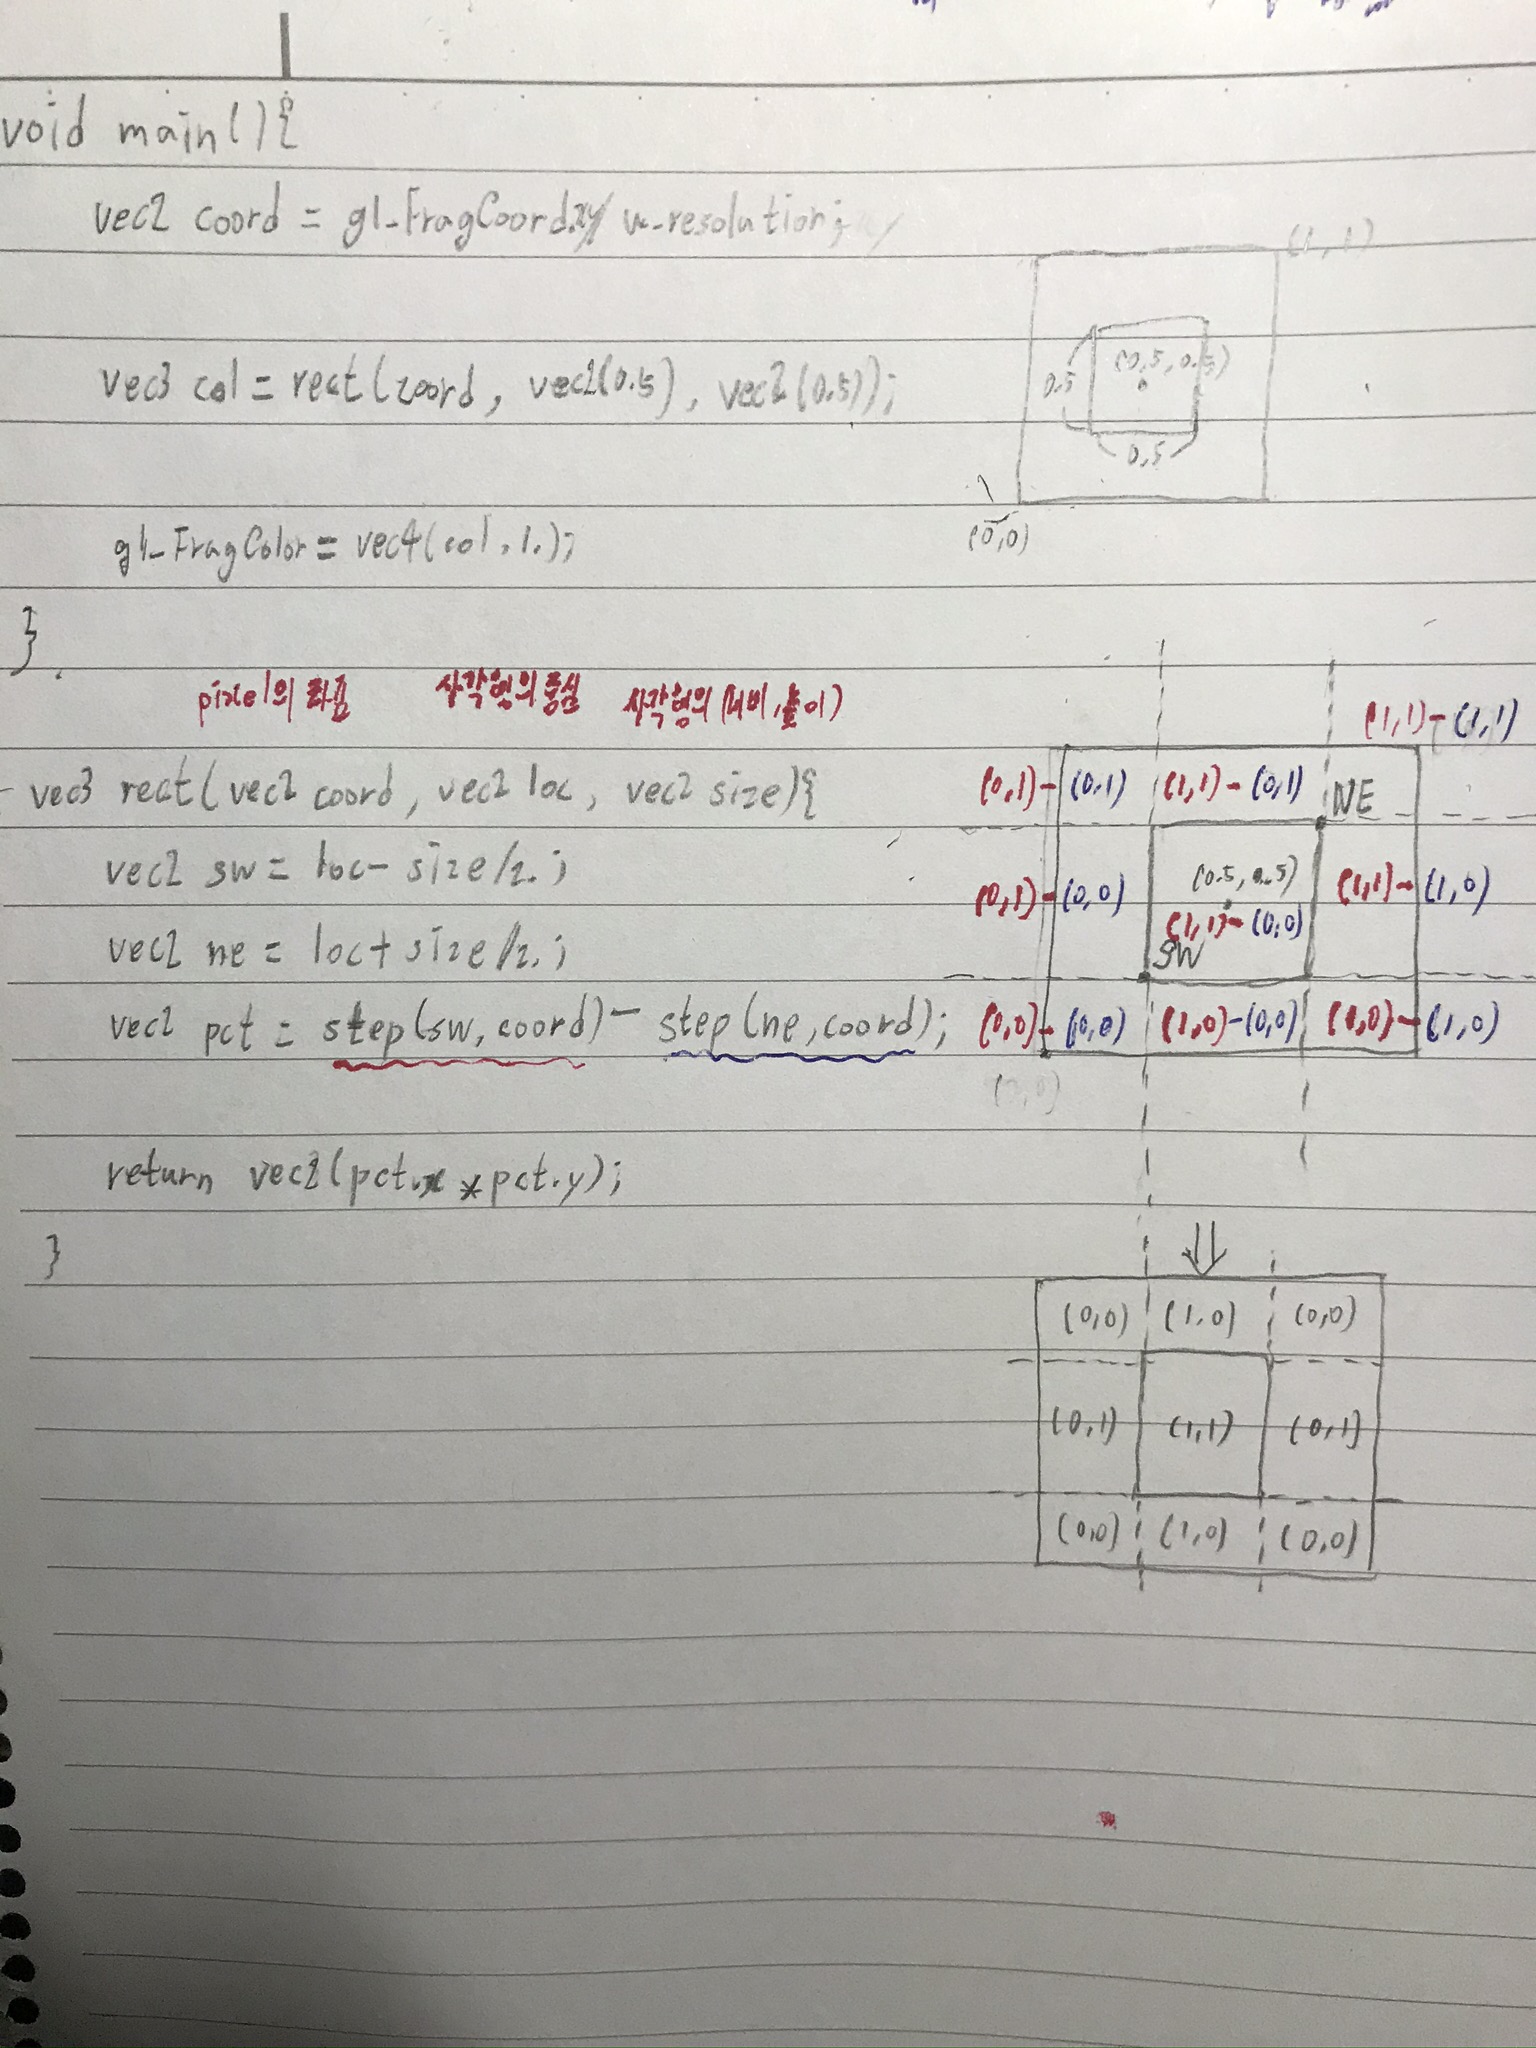 void main(){
vec2 coord = gl_FragCoord.xy/ u_resolution;
(1,1)
vec3 col = rect(coord, vec2(0.5), vec2(0.5));
(0.5, 0.5)
0.5
0.5
(0,0)
gl_FragColor = vec4(col, 1.);
}
pixel의 좌표 사각형의 중심 사각형의 (너비, 높이)
vec3 rect(vec2 coord, vec2 loc, vec2 size){
vec2 sw = loc- size/2.;
vec2 ne = loc+ size/2.;
vec2 pct = step(sw, coord) - step(ne, coord);
return vec3(pct.x * pct.y);
}
(1,1)-(1,1)
(0,1)-(0,1) (1,1)-(0,1) NE
(0.5, 0.5)
(0,1)-(0,0) (1,1)-(0,0) (1,1)-(1,0)
SW
(0,0)-(0,0) (1,0)-(0,0) (1,0)-(1,0)
(0,0)
(0,0) (1,0) (0,0)
(0,1) (1,1) (0,1)
(0,0) (1,0) (0,0)